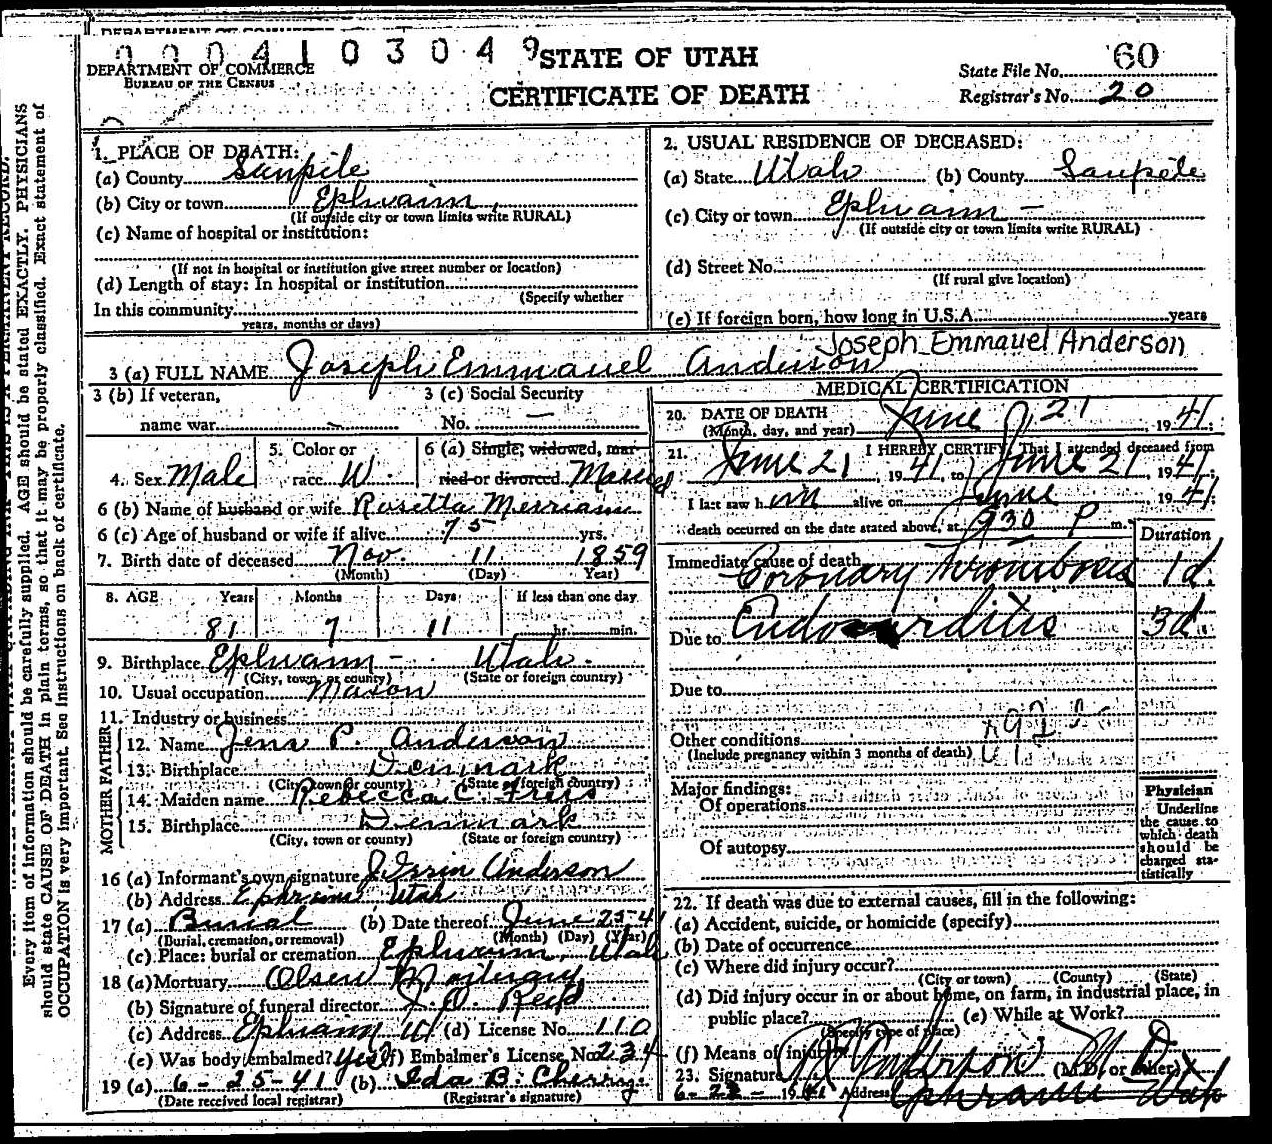 0004103049
STATE OF UTAH
60
DEPARTMENT OF COMMERCE
BUREAU OF THE CENSUS
CERTIFICATE OF DEATH
State File No.
Registrar's No. 20
Every item of information should be carefully supplied. AGE should be stated EXACTLY. PHYSICIANS
should state CAUSE OF DEATH in plain terms, so that it may be properly classified. Exact statement of
OCCUPATION is very important. See instructions on back of certificate.
1. PLACE OF DEATH:
(a) County Sanpete
(b) City or town Ephraim
(If outside city or town limits write RURAL)
(c) Name of hospital or institution:
(If not in hospital or institution give street number or location)
(d) Length of stay: In hospital or institution
(Specify whether
In this community
years, months or days)
2. USUAL RESIDENCE OF DECEASED:
(a) State Utah (b) County Sanpete
(c) City or town Ephraim -
(If outside city or town limits write RURAL)
(d) Street No.
(If rural give location)
(e) If foreign born, how long in U.S.A. years
Joseph Emmauel Anderson
3 (a) FULL NAME Joseph Emmanuel Anderson
3 (b) If veteran, 3 (c) Social Security
name war No. —
4. Sex Male 5. Color or race W. 6 (a) Single, widowed, married or divorced Married
6 (b) Name of husband or wife Rosetta Merriam
6 (c) Age of husband or wife if alive 75 yrs.
7. Birth date of deceased Nov. 11 1859
(Month) (Day) Year)
8. AGE Years Months Days If less than one day
81 7 11 hr. min.
9. Birthplace Ephraim - Utah.
(City, town, or county) (State or foreign country)
10. Usual occupation Mason
11. Industry or business
FATHER
12. Name Jens P. Anderson
13. Birthplace Denmark
(City, town or county) (State or foreign country)
MOTHER
14. Maiden name Rebecca C. Freis
15. Birthplace Denmark
(City, town or county) (State or foreign country)
16 (a) Informant's own signature Anderson
(b) Address Ephraim, Utah
17 (a) Burial (b) Date thereof June 25-41
(Burial, cremation, or removal) (Month) (Day) (Year)
(c) Place: burial or cremation Ephraim, Utah
18 (a) Mortuary Olsen Mortuary
(b) Signature of funeral director
(c) Address Ephraim Ut (d) License No. 110
(e) Was body embalmed? yes (f) Embalmer's License No. 234
19 (a) 6-25-41 (b) Ida B. Cherry
(Date received local registrar) (Registrar's signature)
MEDICAL CERTIFICATION
20. DATE OF DEATH June 21, 1941.
(Month, day, and year)
21. I HEREBY CERTIFY, That I attended deceased from
June 21, 1941, to June 21, 1941.
I last saw him alive on June 1941;
death occurred on the date stated above, at 930 P m.
Duration
Immediate cause of death
Coronary thrombosis 1d.
Due to Endocarditis 3d.
Due to
Other conditions
(Include pregnancy within 3 months of death)
Major findings:
Of operations
Of autopsy
Physician
Underline
the cause to
which death
should be
charged sta-
tistically
22. If death was due to external causes, fill in the following:
(a) Accident, suicide, or homicide (specify)
(b) Date of occurrence
(c) Where did injury occur?
(City or town) (County) (State)
(d) Did injury occur in or about home, on farm, in industrial place, in
public place? (e) While at Work?
(Specify type of place)
(f) Means of injury
23. Signature Anderson M.D. (M.D. or other)
6-23-1941 Address Ephraim Utah